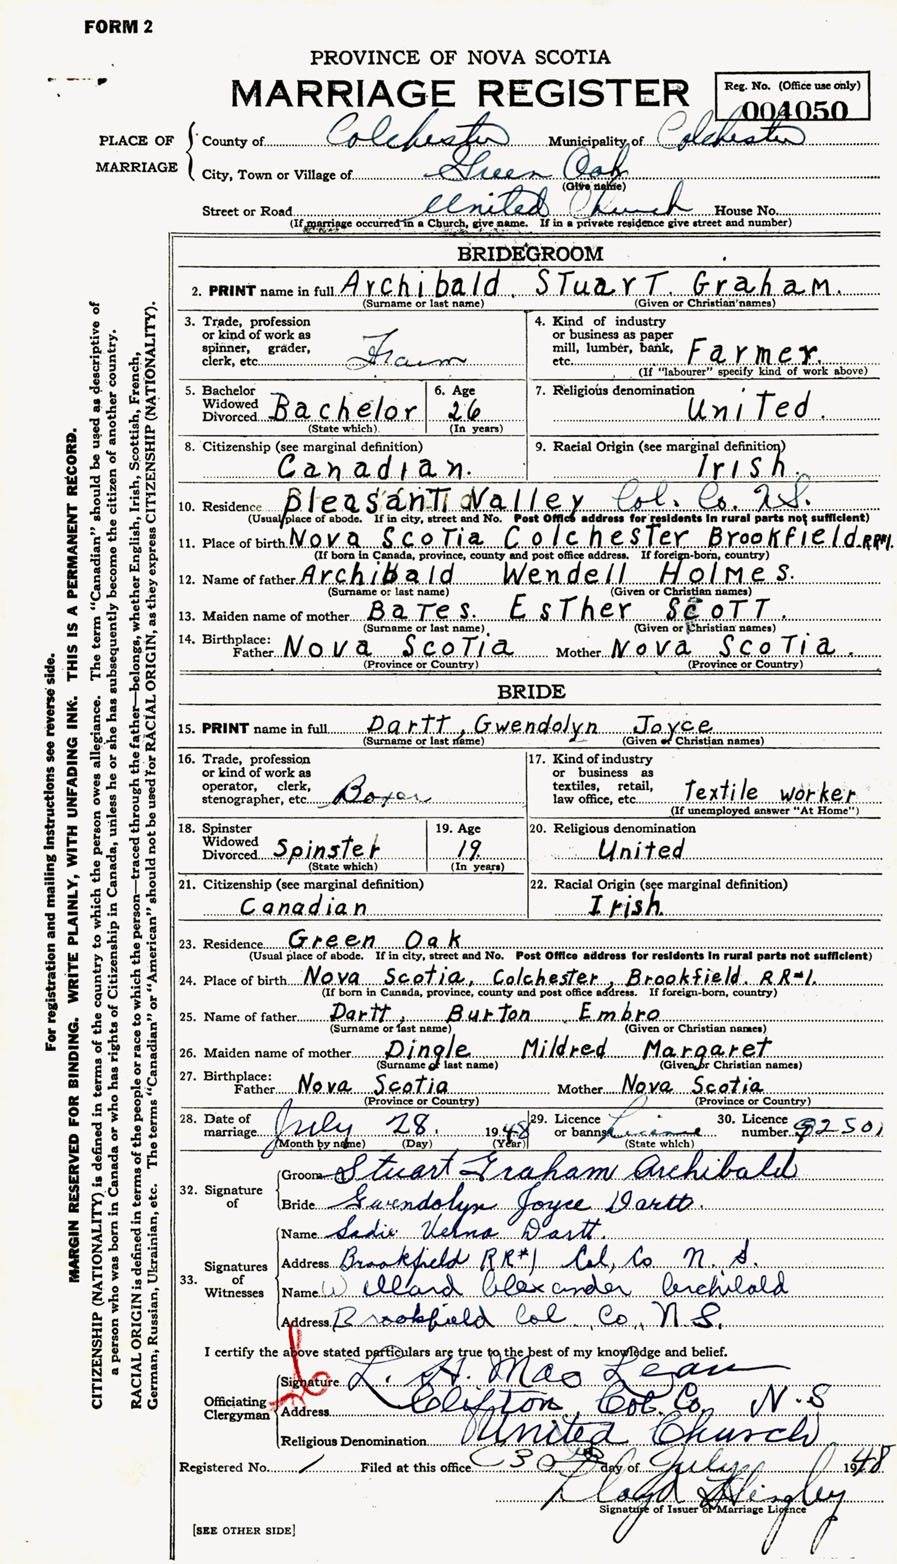 FORM 2
PROVINCE OF NOVA SCOTIA
MARRIAGE REGISTER
Reg. No. (Office use only)
004050
PLACE OF MARRIAGE
County of Colchester Municipality of Colchester
City, Town or Village of Green Oak
(Give name)
Street or Road United Church House No.
(If marriage occurred in a Church, give name. If in a private residence give street and number)
BRIDEGROOM
2. PRINT name in full Archibald, Stuart Graham.
(Surname or last name) (Given or Christian names)
3. Trade, profession or kind of work as spinner, grader, clerk, etc. Farm
4. Kind of industry or business as paper mill, lumber, bank, etc. Farmer.
(If "labourer" specify kind of work above)
5. Bachelor Widowed Divorced Bachelor
(State which)
6. Age 26
(In years)
7. Religious denomination United.
8. Citizenship (see marginal definition) Canadian.
9. Racial Origin (see marginal definition) Irish.
10. Residence Pleasant Valley Col. Co. N.S.
(Usual place of abode. If in city, street and No. Post Office address for residents in rural parts not sufficient)
11. Place of birth Nova Scotia Colchester Brookfield RR#1.
(If born in Canada, province, county and post office address. If foreign-born, country)
12. Name of father Archibald Wendell Holmes.
(Surname or last name) (Given or Christian names)
13. Maiden name of mother Bates. Esther Scott.
(Surname or last name) (Given or Christian names)
14. Birthplace: Father Nova Scotia Mother Nova Scotia.
(Province or Country) (Province or Country)
BRIDE
15. PRINT name in full Dartt, Gwendolyn Joyce
(Surname or last name) (Given or Christian names)
16. Trade, profession or kind of work as operator, clerk, stenographer, etc. Boxer
17. Kind of industry or business as textiles, retail, law office, etc. Textile worker
(If unemployed answer "At Home")
18. Spinster Widowed Divorced Spinster
(State which)
19. Age 19.
(In years)
20. Religious denomination United
21. Citizenship (see marginal definition) Canadian
22. Racial Origin (see marginal definition) Irish.
23. Residence Green Oak
(Usual place of abode. If in city, street and No. Post Office address for residents in rural parts not sufficient)
24. Place of birth Nova Scotia, Colchester, Brookfield. RR#1.
(If born in Canada, province, county and post office address. If foreign-born, country)
25. Name of father Dartt, Burton Embro
(Surname or last name) (Given or Christian names)
26. Maiden name of mother Dingle Mildred Margaret
(Surname or last name) (Given or Christian names)
27. Birthplace: Father Nova Scotia Mother Nova Scotia
(Province or Country) (Province or Country)
28. Date of marriage July 28. 1948
(Month by name) (Day) (Year)
29. Licence or banns License
30. Licence number 92501
32. Signature of
Groom Stuart Graham Archibald
Bride Gwendolyn Joyce Dartt.
33. Signatures of Witnesses
Name Sadie Verna Dartt.
Address Brookfield RR#1 Col, Co N. S.
Name Willard Alexander Archibald
Address Brookfield Col. Co, N.S.
I certify the above stated particulars are true to the best of my knowledge and belief.
Officiating Clergyman
Signature L. H. MacLean
Address Clifton, Col. Co. N.S
Religious Denomination United Church
Registered No. 1 Filed at this office 30 day of July 1948
Lloyd Hingley
Signature of Issuer of Marriage Licence
[SEE OTHER SIDE]
For registration and mailing instructions see reverse side.
MARGIN RESERVED FOR BINDING. WRITE PLAINLY, WITH UNFADING INK. THIS IS A PERMANENT RECORD.
CITIZENSHIP (NATIONALITY) is defined in terms of the country to which the person owes allegiance. The term "Canadian" should be used as descriptive of
a person who was born in Canada or who has rights of Citizenship in Canada, unless he or she has subsequently become the citizen of another country.
RACIAL ORIGIN is defined in terms of the people or race to which the person—traced through the father—belongs, whether English, Irish, Scottish, French,
German, Russian, Ukrainian, etc. The terms "Canadian" or "American" should not be used for RACIAL ORIGIN, as they express CITIZENSHIP (NATIONALITY).